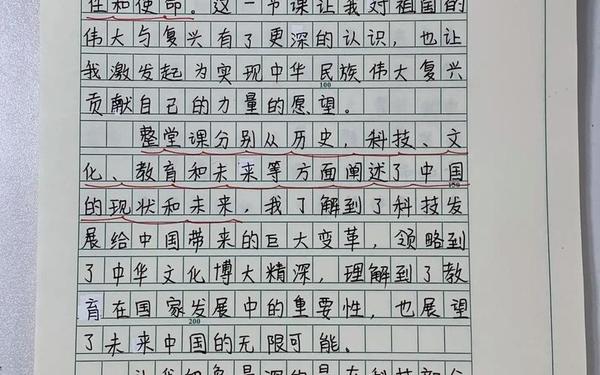 任和使命。这一节课让我对祖国的
伟大与复兴有了更深的认识，也让
我激发起为实现中华民族伟大复兴
100
贡献自己的力量的愿望。
整堂课分别从历史，科技、文
化、教育和未来等方面阐述了中国
150
的现状和未来，我了解到了科技发
展给中国带来的巨大变革，领略到
了中华文化博大精深，理解到了教
育在国家发展中的重要性，也展望
200
了未来中国的无限可能、
让我印象最深的是在科技部分